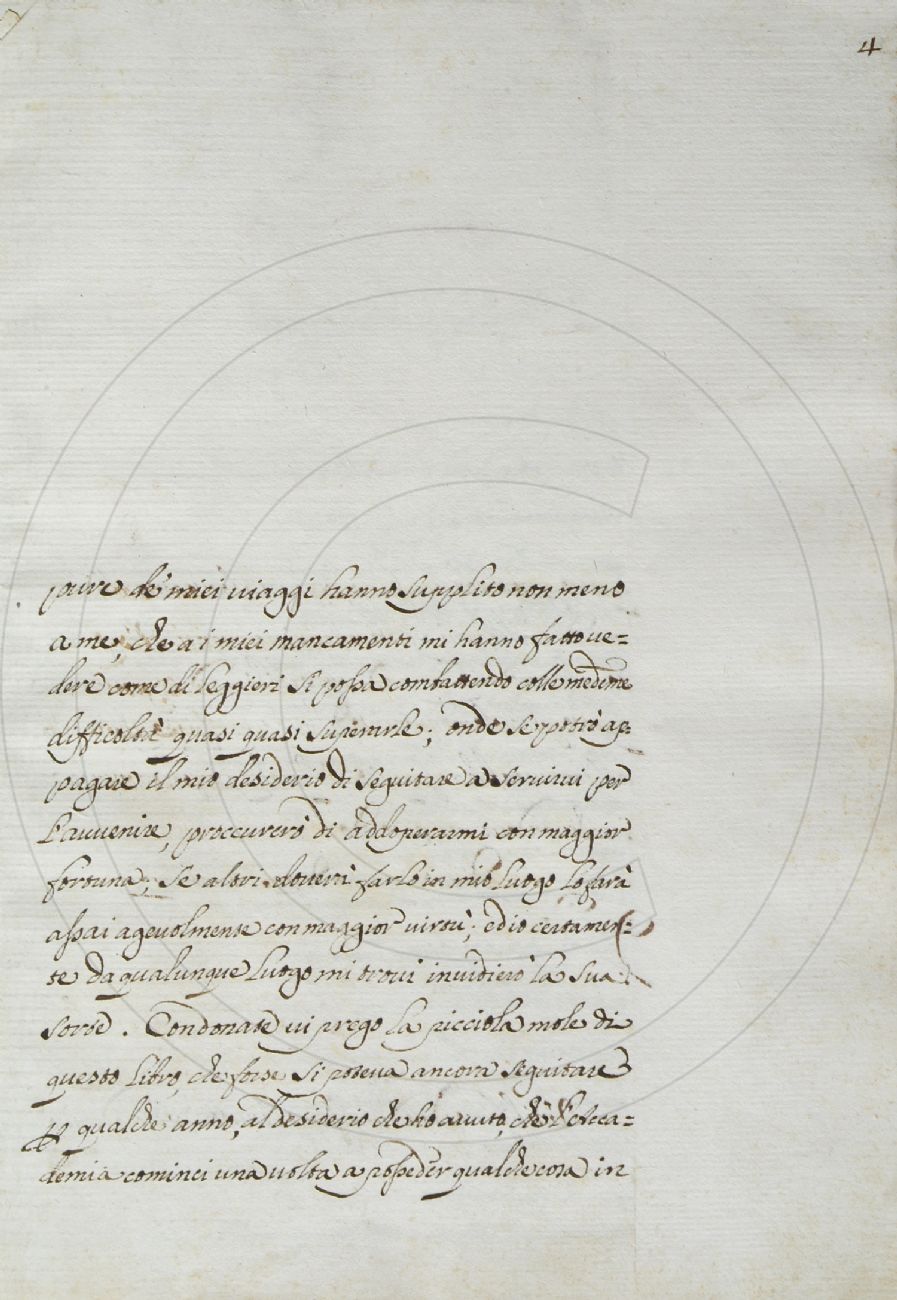 4
pure de' miei viaggi hanno supplito non meno
a me, che a i miei mancamenti mi hanno fatto ve=
dere come di leggieri si possa combattendo colle medeme
difficoltà quasi quasi superarle; onde se potrò ap=
pagare il mio desiderio di seguitare a servirvi per
l'avvenire, proccurerò di addoperarmi con maggior
fortuna; se altri doverà farlo in mio luogo lo farà
assai agevolmente con maggior virtù; ed io certamen=
te da qualunque luogo mi trovi invidierò la sua
sorte. Condonate vi prego la picciola mole di
questo libro, che forse si poteva ancora seguitare
p qualche anno, al desiderio che ho avuto, che l'Acca=
demia cominci una volta a posseder qualche cosa in